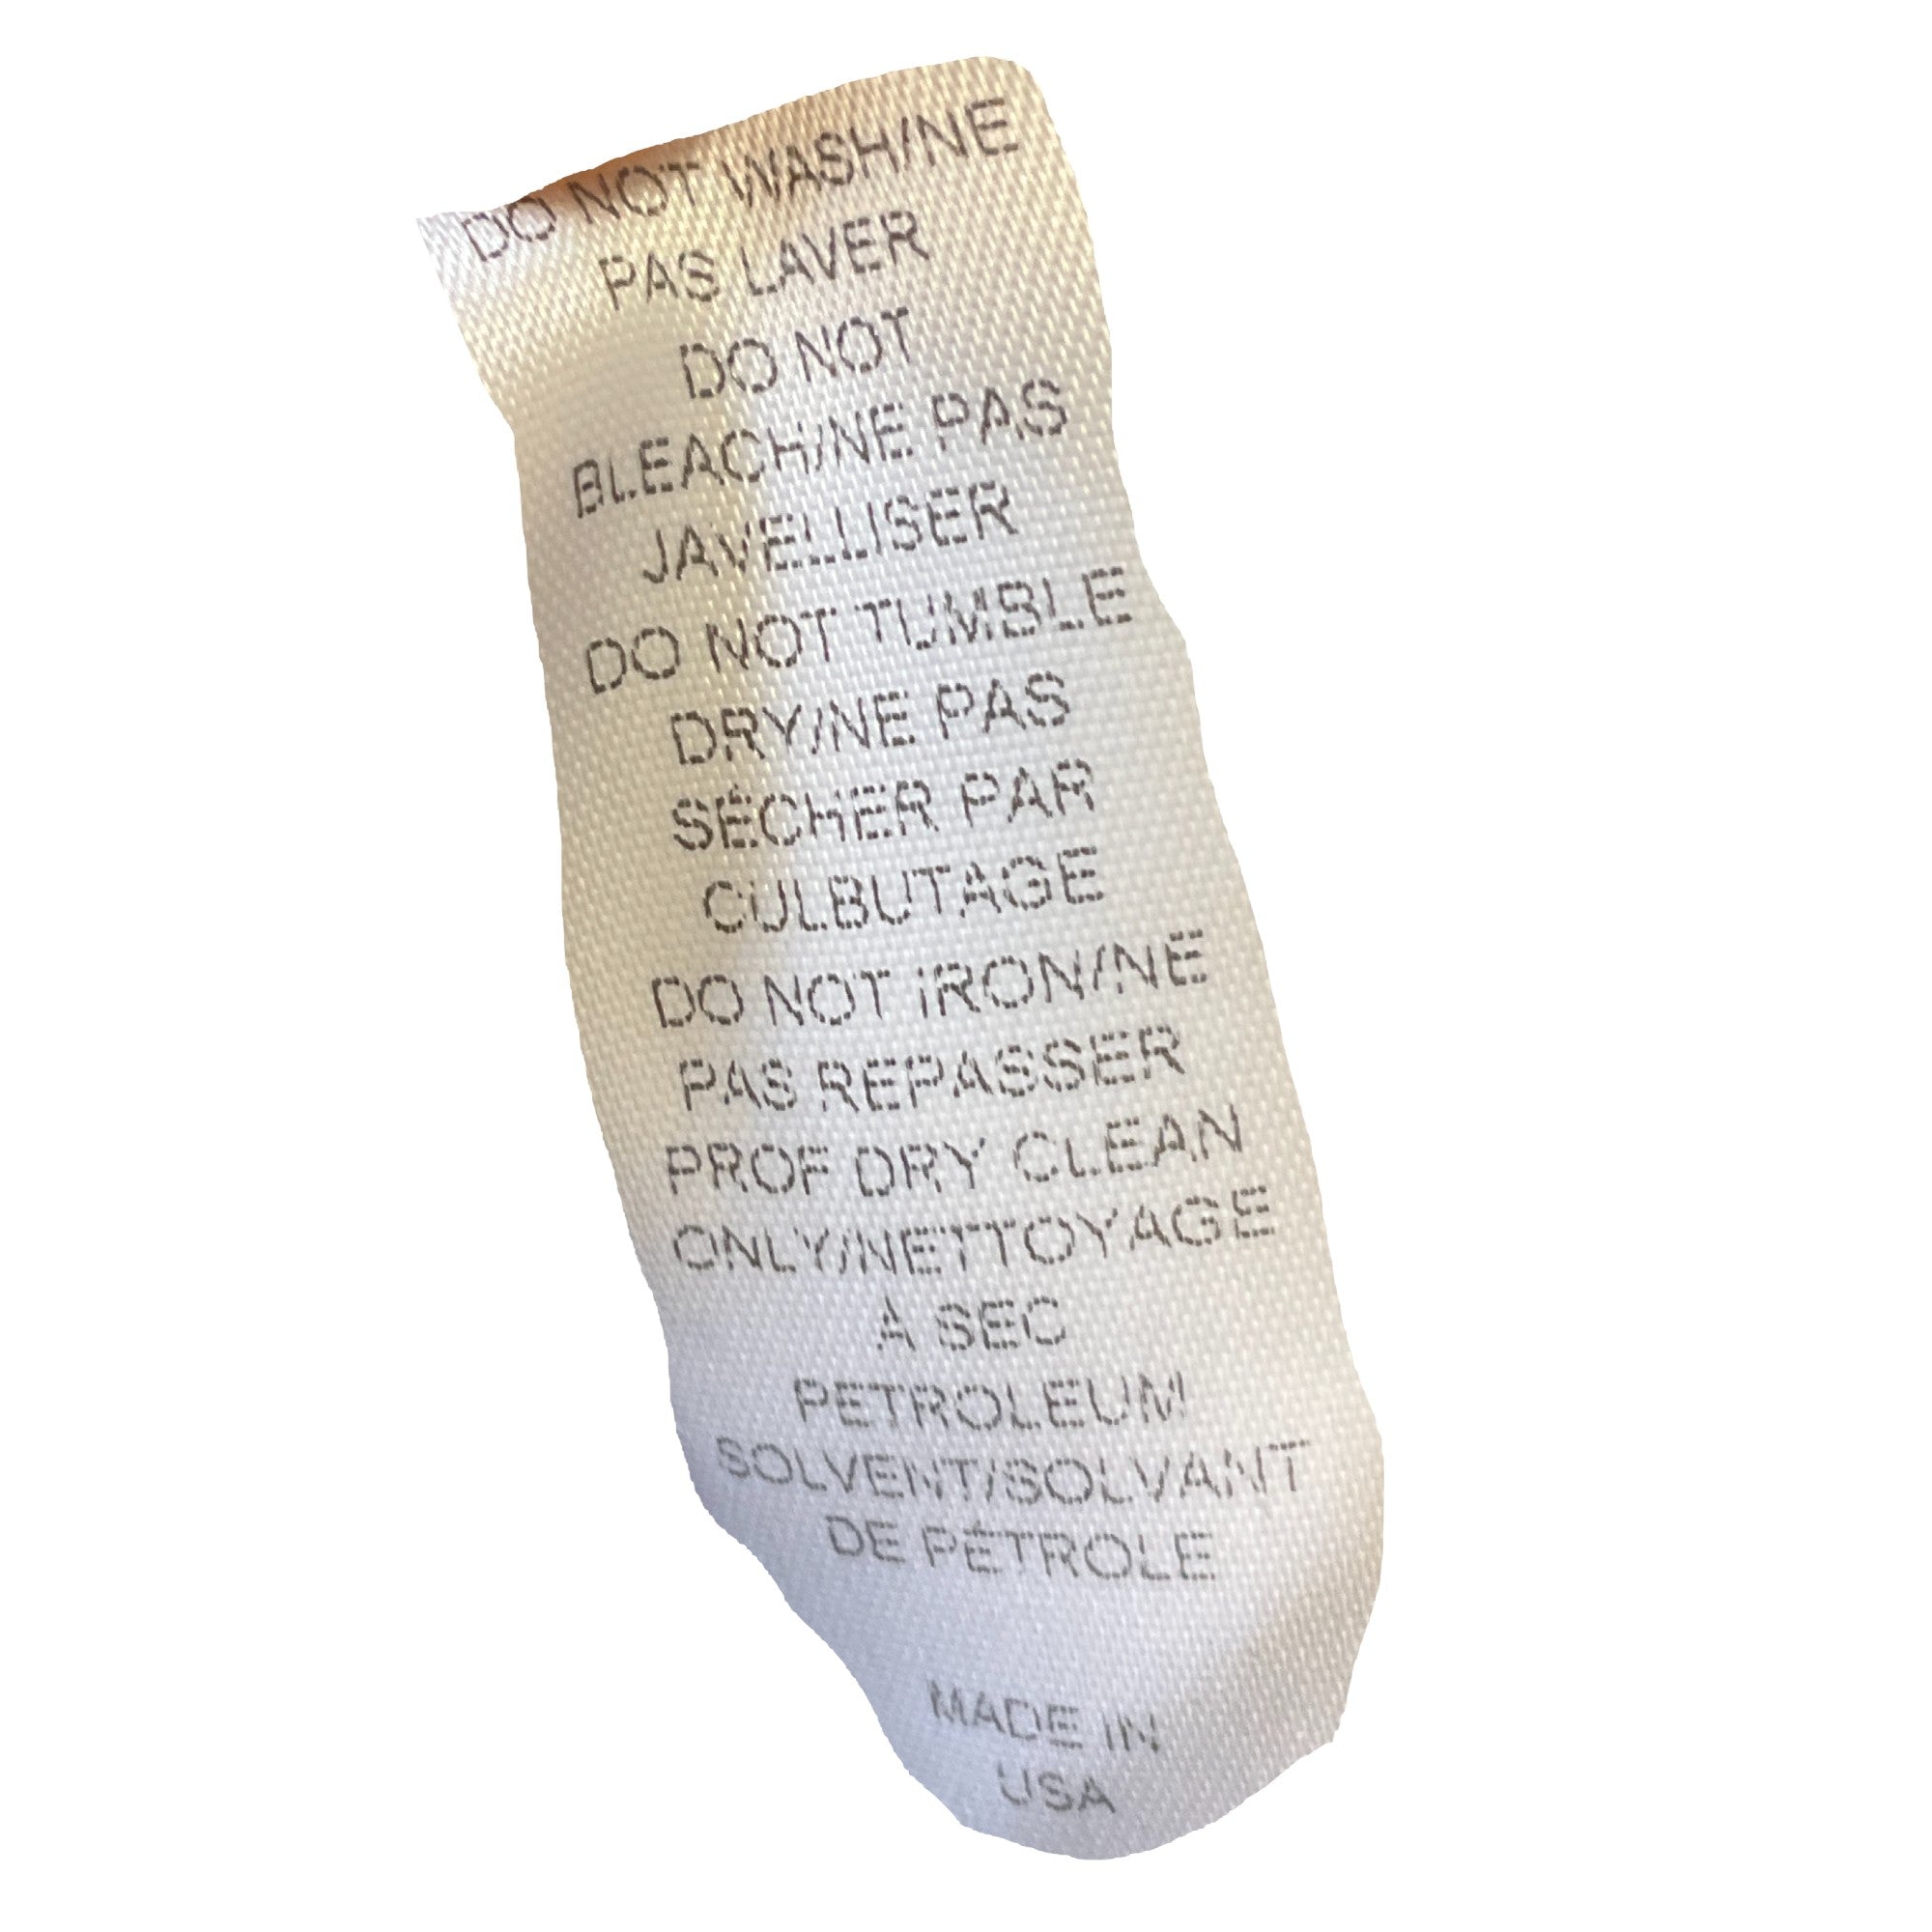 DO NOT WASH/NE
PAS LAVER
DO NOT
BLEACH/NE PAS
JAVELLISER
DO NOT TUMBLE
DRY/NE PAS
SÉCHER PAR
CULBUTAGE
DO NOT IRON/NE
PAS REPASSER
PROF DRY CLEAN
ONLY/NETTOYAGE
À SEC
PETROLEUM
SOLVENT/SOLVANT
DE PÉTROLE
MADE IN
USA